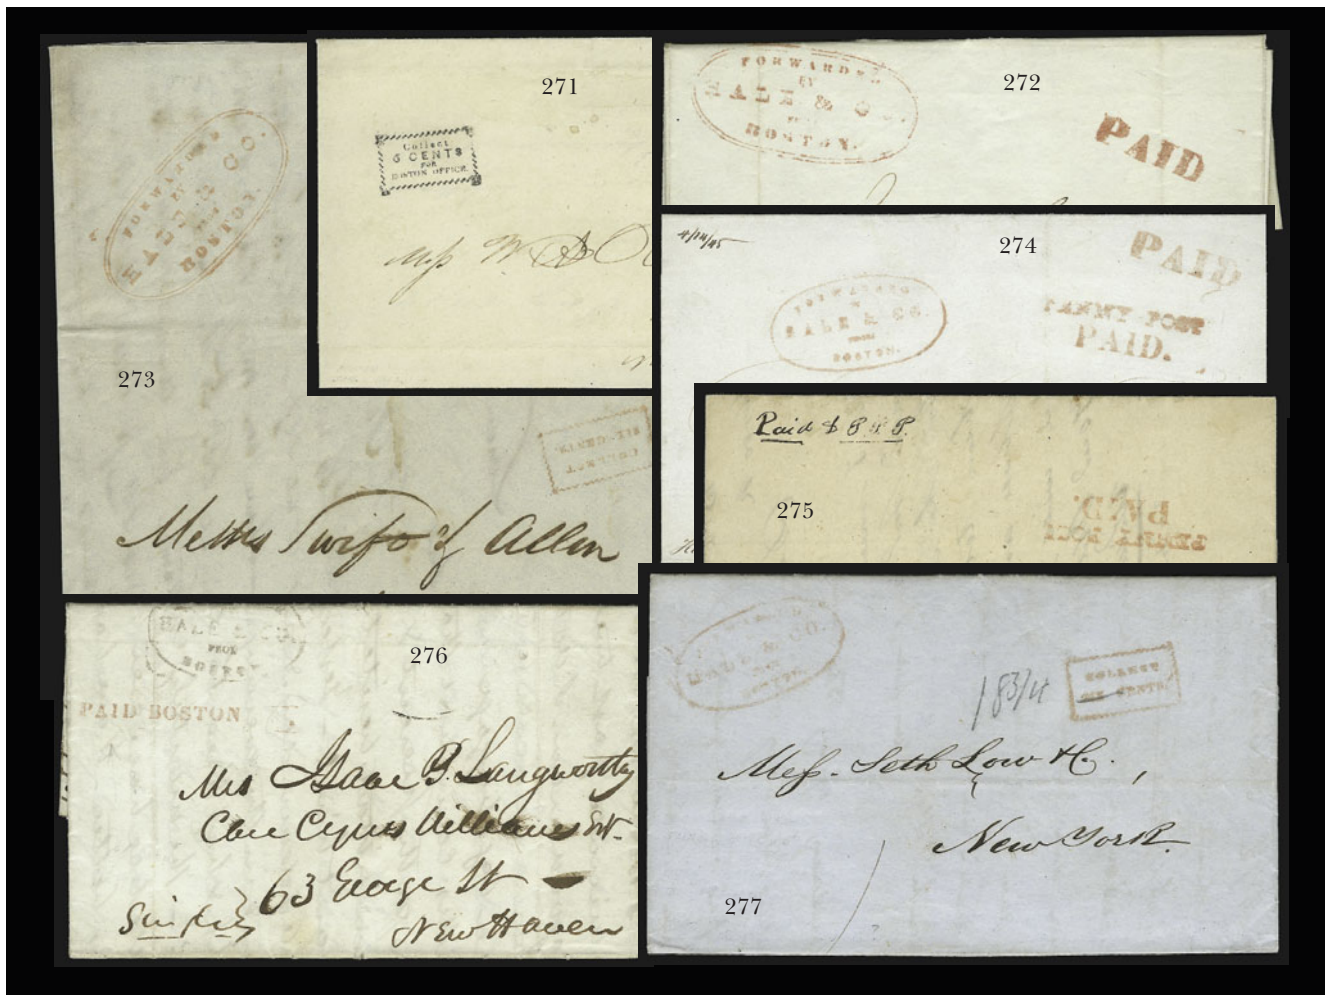 271
Collect
6 CENTS
FOR
BOSTON OFFICE.
Mess W. 
272
FORWARDED
BY
HALE & CO.
FROM
BOSTON.
PAID
273
FORWARDED
BY
HALE & CO.
FROM
BOSTON.
COLLECT
SIX CENTS.
Messrs Swift & Allen
274
4/14/45
FORWARDED
BY
HALE & CO.
FROM
BOSTON.
PAID
PENNY POST
PAID.
275
Paid
PENNY POST
PAID.
276
HALE & CO.
FROM
BOSTON
PAID BOSTON
Mrs Isaac P. Langworthy
Care Cyrus Williams Est.
63 George St
New Haven
277
FORWARDED
HALE & CO.
183/4
COLLECT
SIX CENTS.
Mess. Seth Low & Co.
New York.